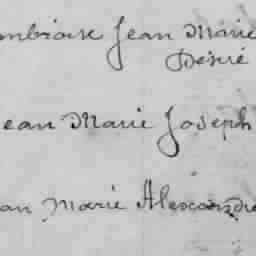 mbroise Jean Marie
Désiré
Jean Marie Joseph
an Marie Alexandre